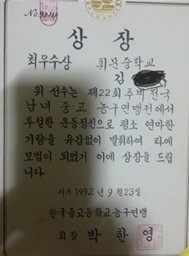 상 장
최우수상
위 선수는 제22회 추계 전국
남녀 중·고 농구연맹전에서
투철한 운동정신으로 평소 연마한
기량을 유감없이 발휘하여 타에
모범이 되었기 이에 상장을 드립
니다.
서기 1992 년 9 월 23일
한국중고등학교 농구연맹
회장 박 한 영